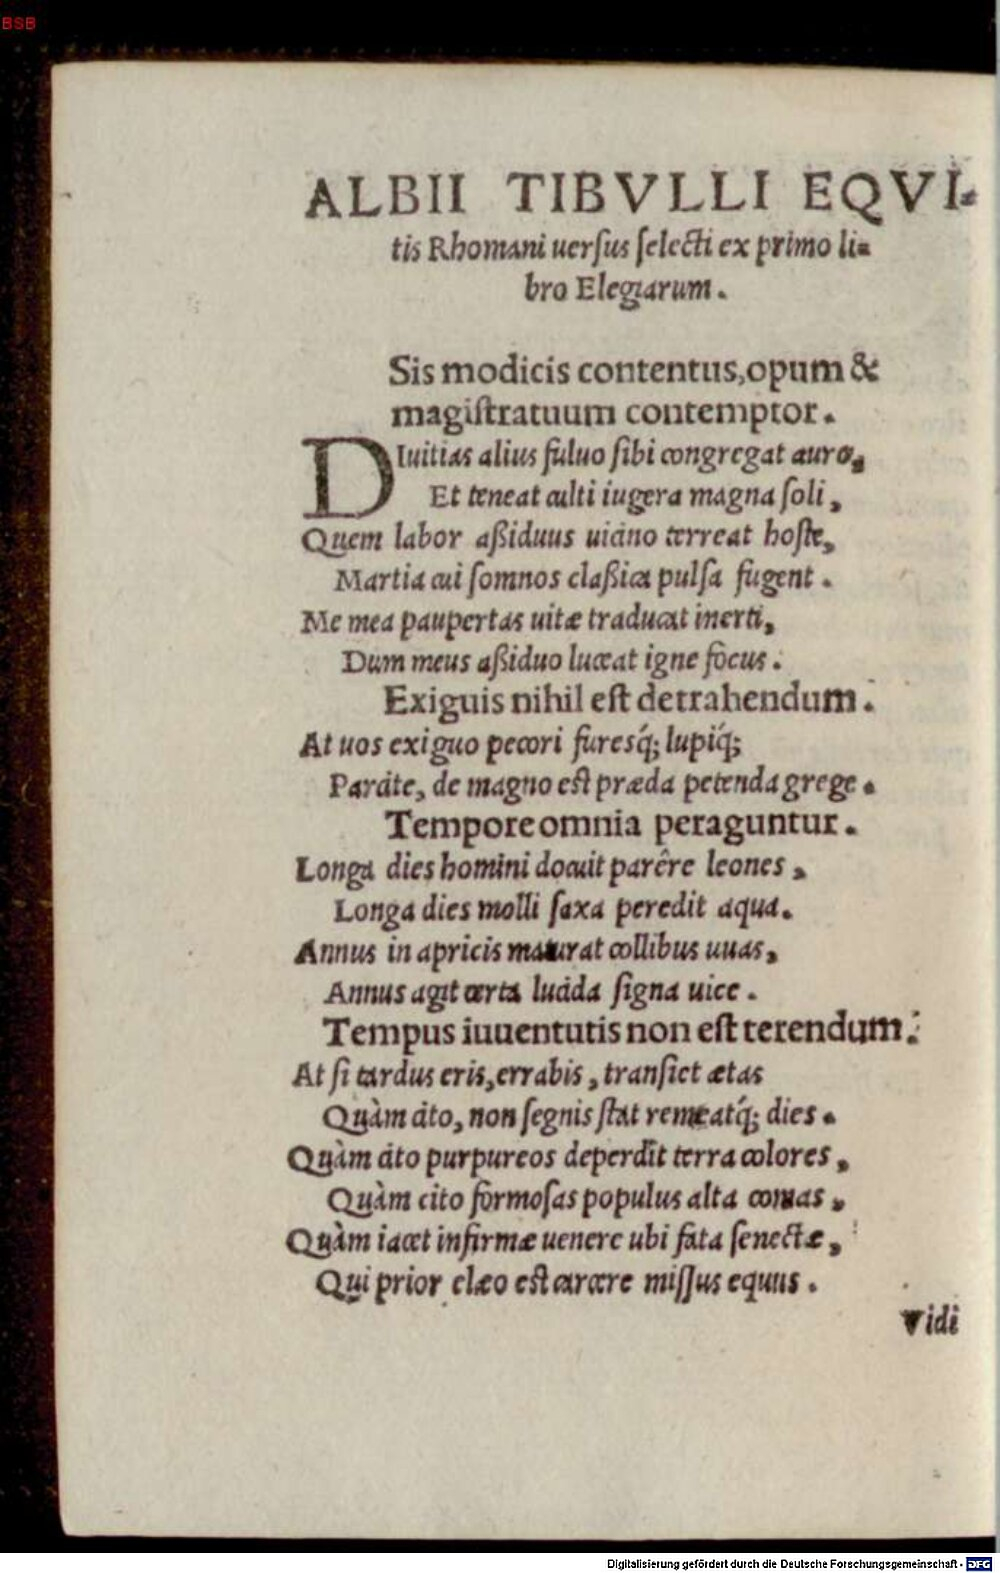 BSB
ALBII TIBVLLI EQVI-
tis Rhomani uerſus ſelecti ex primo li-
bro Elegiarum.
Sis modicis contentus, opum &
magiſtratuum contemptor.
DIuitias alius fuluo ſibi congregat auro,
Et teneat culti iugera magna ſoli,
Quem labor aßiduus uicino terreat hoſte,
Martia cui ſomnos claßica pulſa fugent.
Me mea paupertas uitæ traducat inerti,
Dum meus aßiduo luceat igne focus.
Exiguis nihil eſt detrahendum.
At uos exiguo pecori furesq́; lupiq́;
Parcite, de magno eſt præda petenda grege.
Tempore omnia peraguntur.
Longa dies homini docuit parêre leones,
Longa dies molli ſaxa peredit aqua.
Annus in apricis maturat collibus uuas,
Annus agit certa lucida ſigna uice.
Tempus iuuentutis non eſt terendum.
At ſi tardus eris, errabis, tranſiet ætas
Quàm cito, non ſegnis ſtat remeatq́; dies.
Quàm cito purpureos deperdit terra colores,
Quàm cito formoſas populus alta comas,
Quàm iacet infirmæ uenere ubi fata ſenectæ,
Qui prior elæo eſt carcere miſſus equus.
Vidi
Digitalisierung gefördert durch die Deutsche Forschungsgemeinschaft - DFG